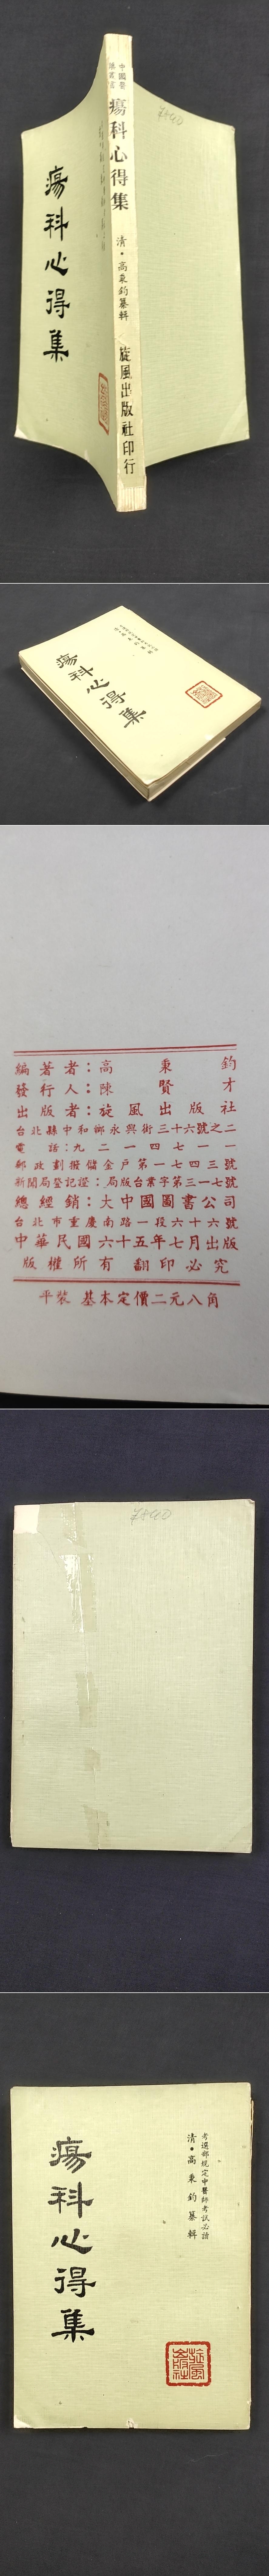 瘍科心得集
瘍科心得集
清・高秉鈞纂輯
旋風出版社印行
瘍科心得集
編著者：高秉鈞
發行人：陳賢才
出版者：旋風出版社
台北縣中和鄉永興街三十六號之二
電話：九二一四七一一
郵政劃撥儲金戶第一七四三號
新聞局登記證：局版台業字第三一七號
總經銷：大中國圖書公司
台北市重慶南路一段六十六號
中華民國六十五年七月出版
版權所有 翻印必究
平裝 基本定價二元八角
考選部規定中醫師考試必讀
清・高秉鈞纂輯
瘍科心得集
旋風出版社